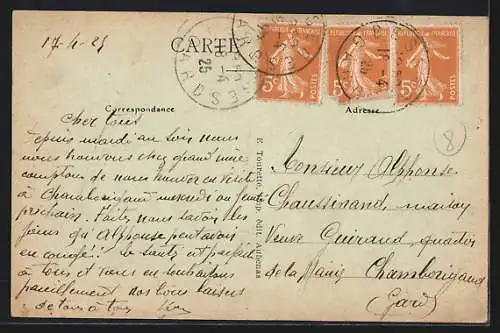 17-4-25
CARTE
5c
5c
5c
POSTES
POSTES
GARD
25
Correspondance
Adresse
8
Cher tous
Depuis mardi au soir nous
nous trouvons chez grand'mère
comptons de nous trouver en visite
à Chamborigaud mercredi ou jeudi
prochain. Faites nous savoir les
jours qu'Alphonse
en congé. La santé est parfaite
à tous et nous en souhaitons
pareillement Bons baisers
de tous à tous
E. Tourette, imp. édit. Aubenas
Monsieur Alphonse
Chaussinand, maison
Veuve Guiraud, quartier
de la Mairie Chamborigaud
(Gard)